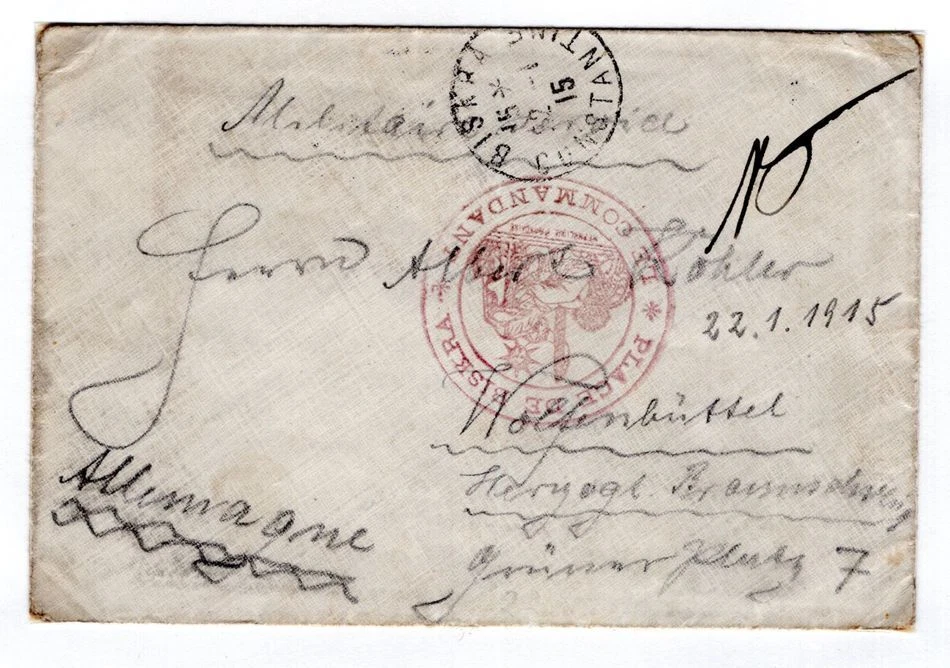 BISKRA
CONSTANTINE
15 * 
15
Militär
Herrn Albert Köhler
22.1.1915
PLACE DE BISKRA * LE COMMANDANT *
RÉPUBLIQUE FRANÇAISE
Wolfenbüttel
Herzogt. Braunschweig
Allemagne
Grüner Platz 7